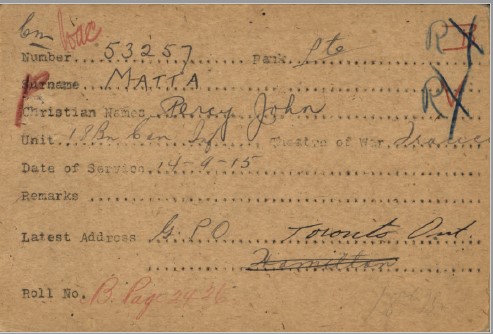 Em bac R I
Number 53257 Rank Pte
Surname MATTA R
Christian Names Percy John
Unit 18 Bn Can Inf Theatre of War France
Date of Service 14-9-15
Remarks
Latest Address G.P.O Toronto Ont
Hamilton
Roll No. B. Page 2426